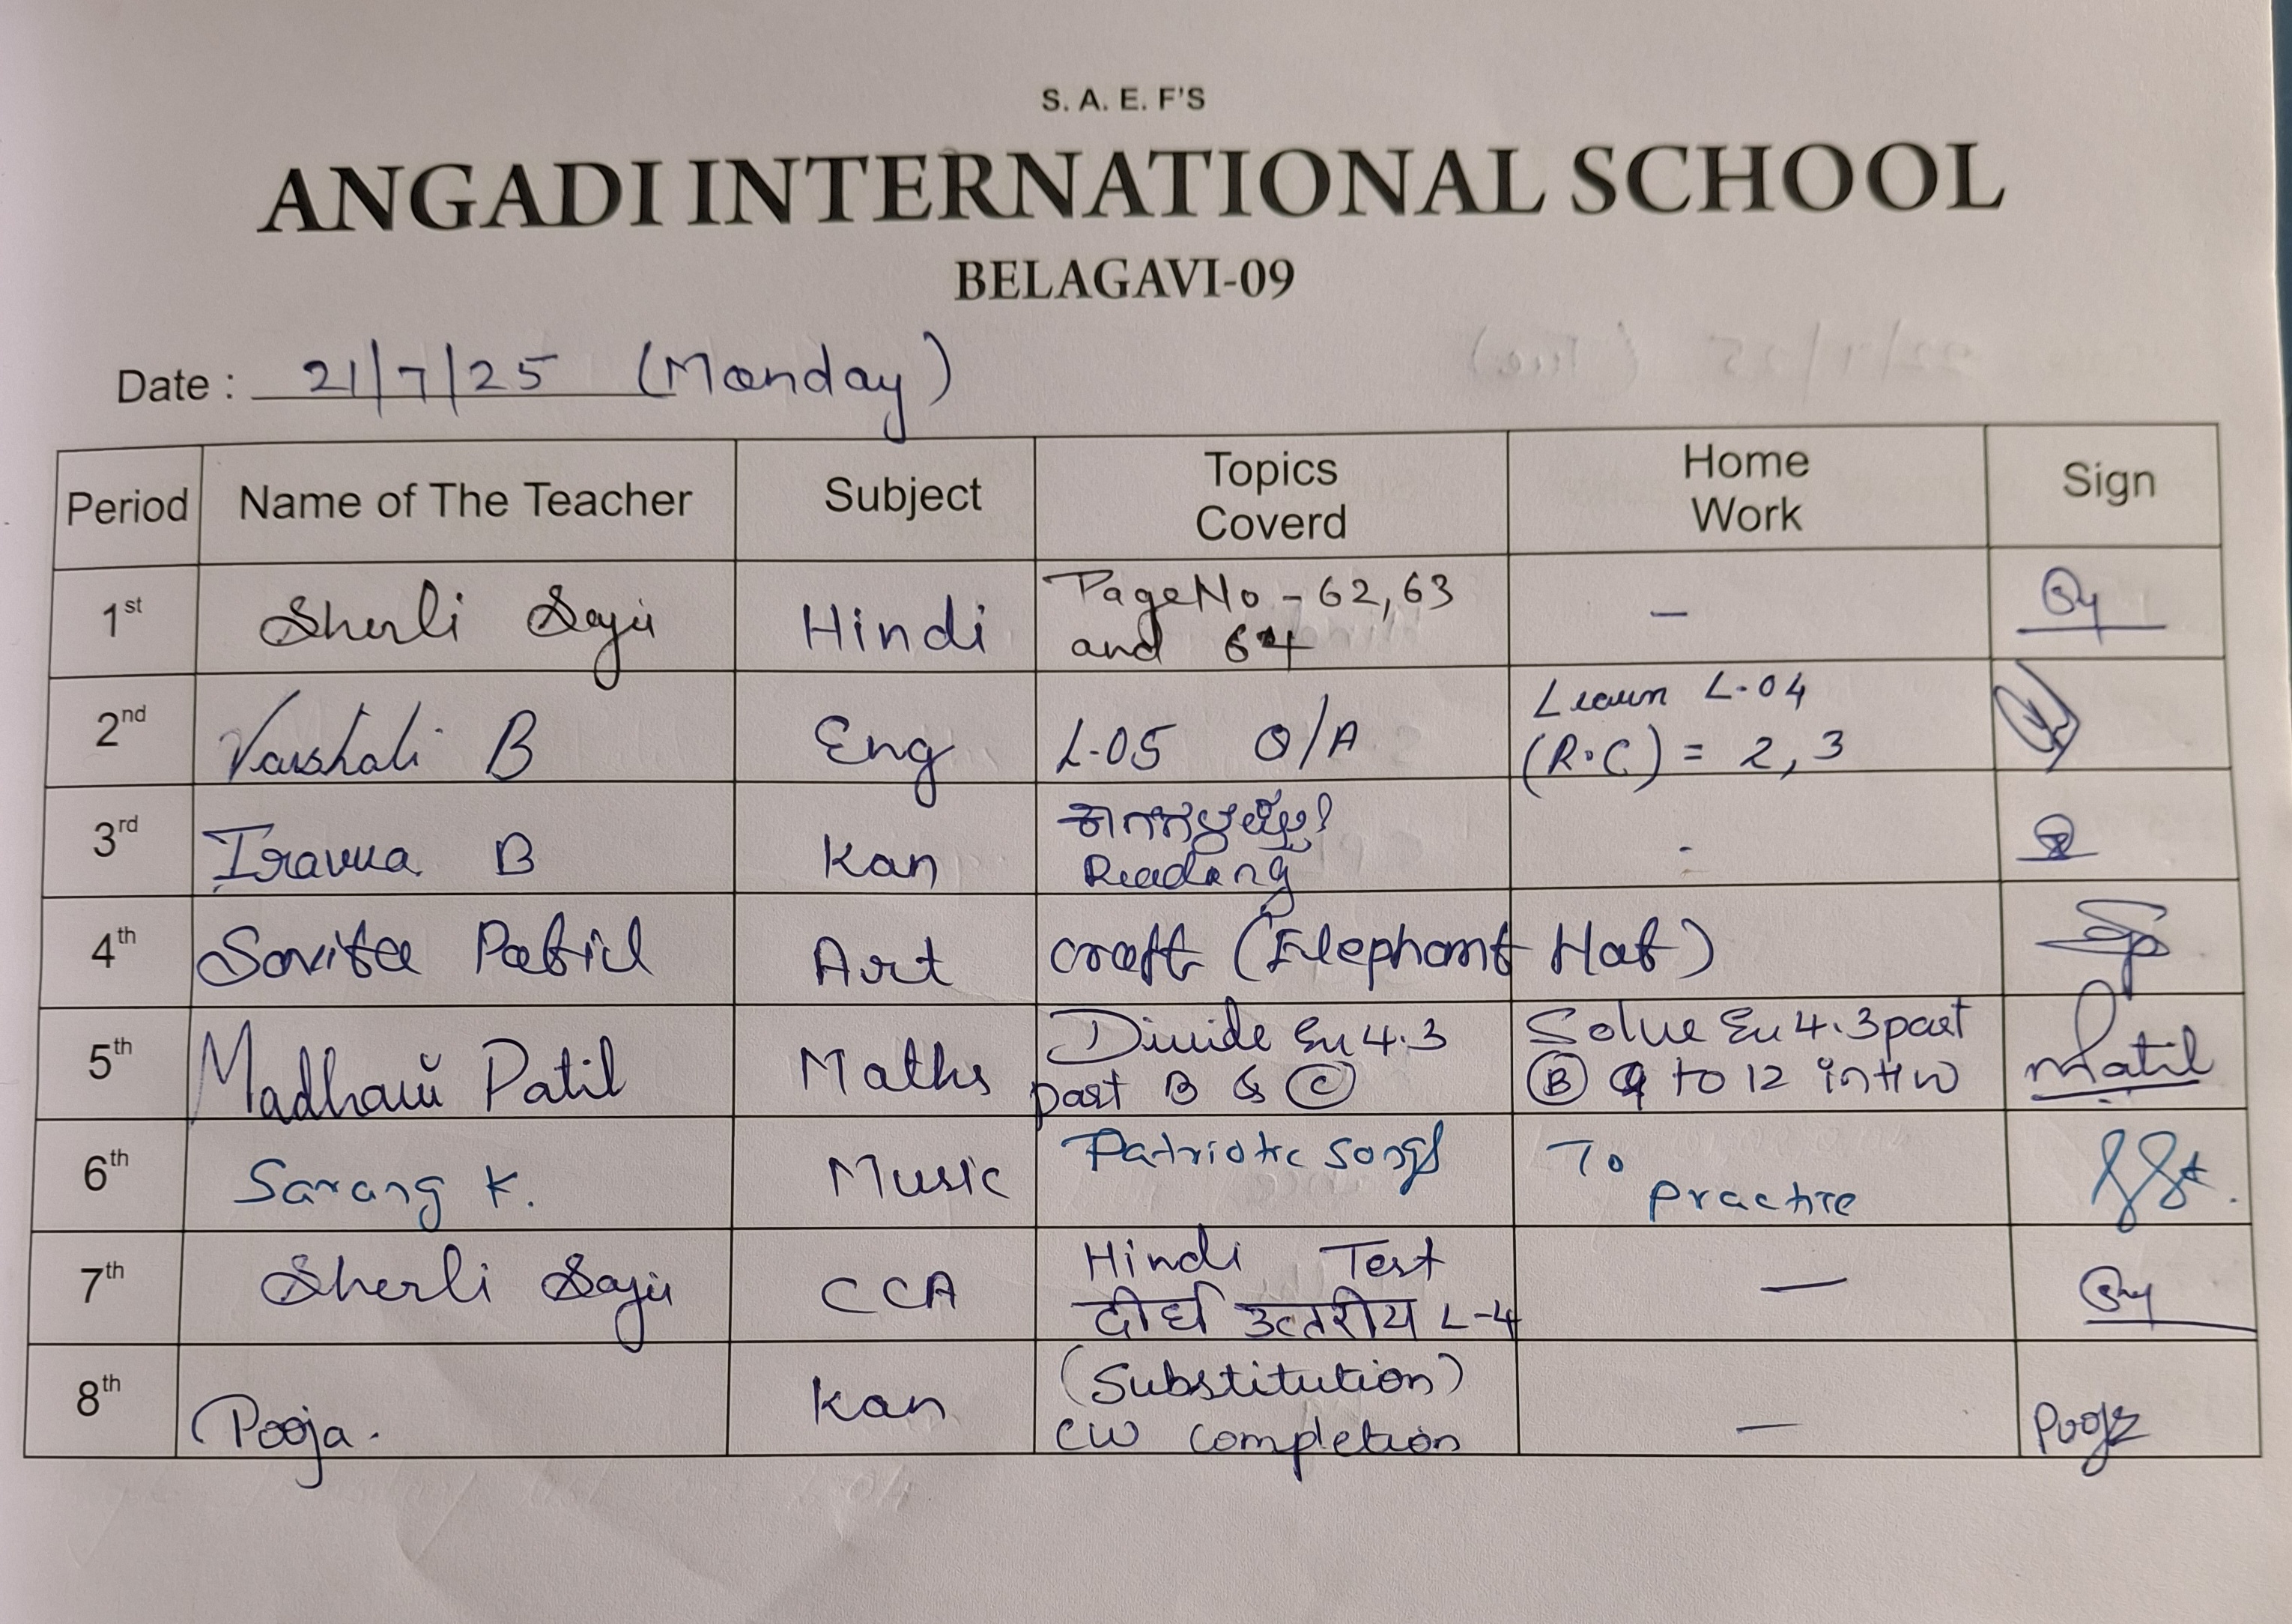 S. A. E. F'S
ANGADI INTERNATIONAL SCHOOL
BELAGAVI-09
Date : 21/7/25 (Monday)
Period Name of The Teacher Subject Topics Coverd Home Work Sign
1st Sherli Saju Hindi Page No - 62, 63 –
and 64
2nd Vaishali B Eng L-05 Q/A Learn L-04
(R.C) = 2, 3
3rd Iravva B Kan -
Reading
4th Savita Patil Art craft (Elephant Hat)
5th Madhavi Patil Maths Divide Ex 4.3 Solve Ex 4.3 part
part B & C B 9 to 12 in HW
6th Sarang K. Music Patriotic songs To
practice
7th Sherli Saju CCA Hindi Test —
दीर्घ उत्तरीय L-4
8th Pooja. Kan (Substitution) — Pooja
CW completion